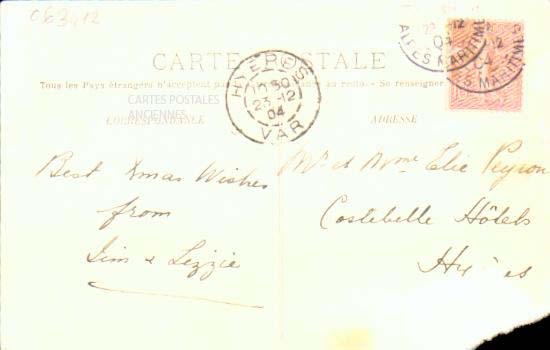 063412
CARTE POSTALE
Tous les Pays étrangers n'acceptent pas au recto. Se renseigner
CARTES POSTALES
ANCIENNES
CORRESPONDANCE
ADRESSE
HYÈRES
10 30
23-12
04
VAR
12
04
ALPES MARITIMES
12
04
MARITIMES
Best Xmas Wishes
from
Jim & Lizzie
Mr et Mme Elie Peyron
Costebelle Hôtels